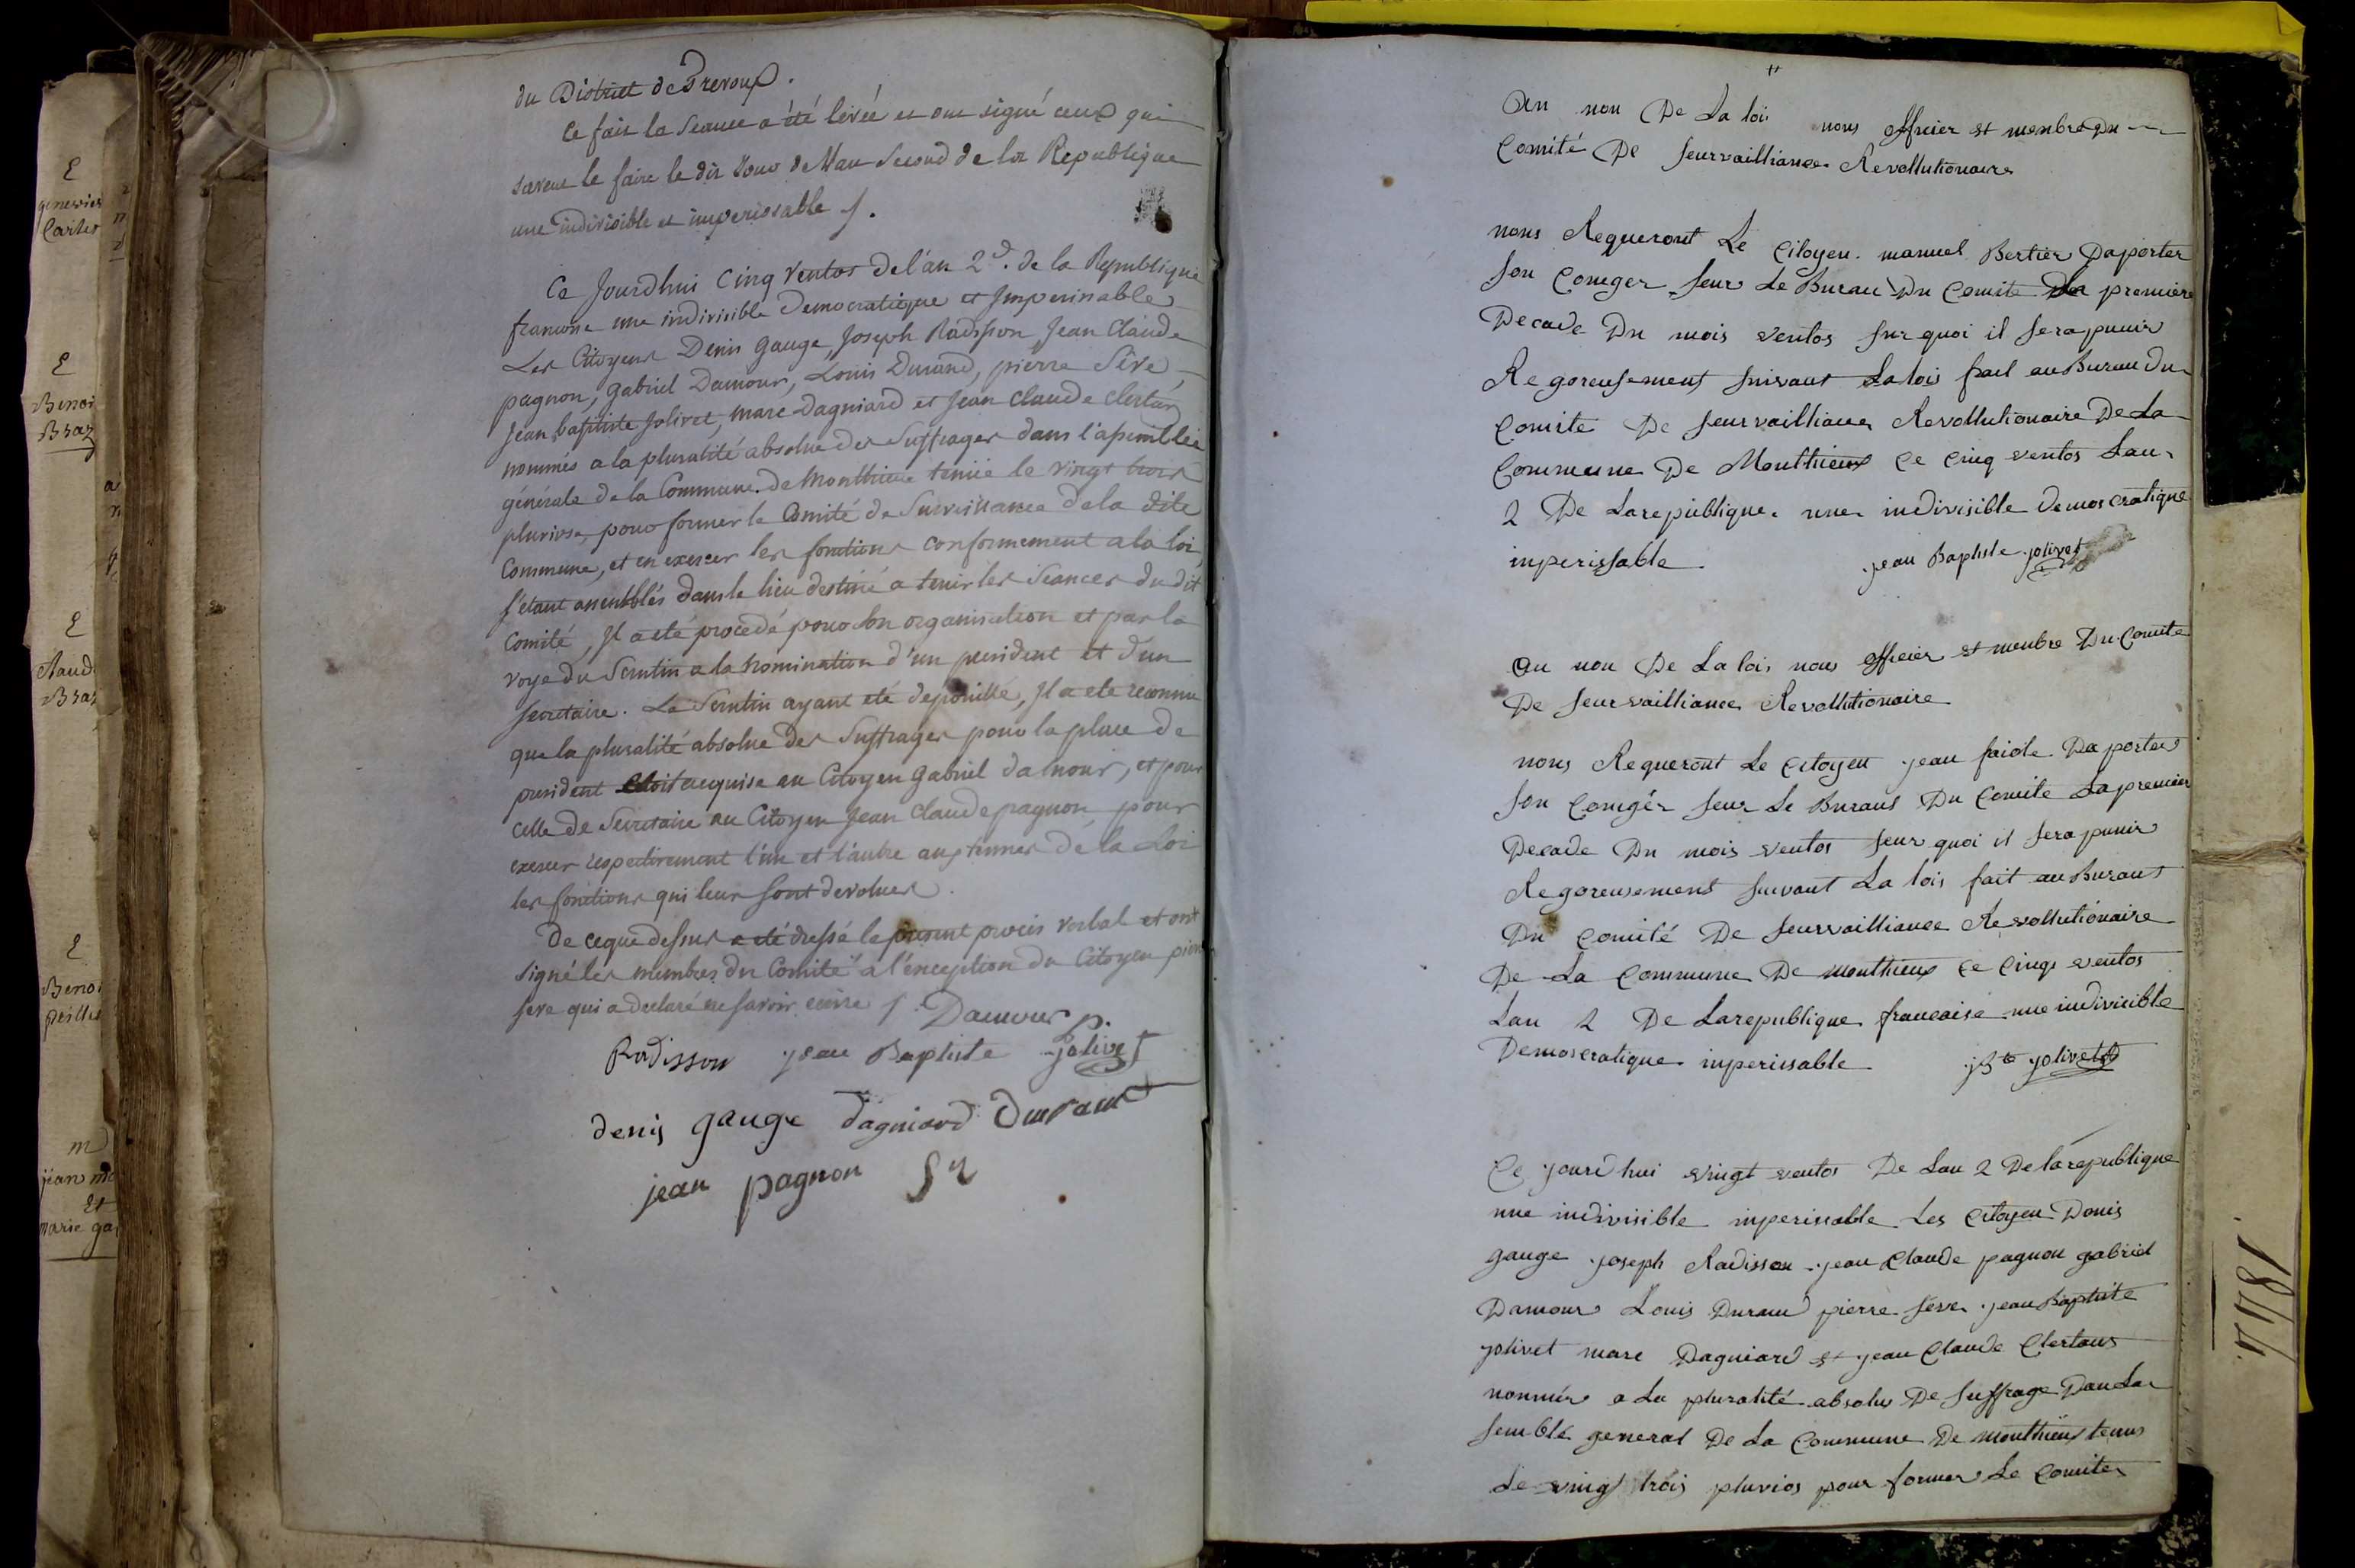 du District de Trevoux.
Ce fait la Seance a été levée et ont signé ceux qui
savent le faire le dit Jour de l'an Second de la Republique
une indivisible et imperissable /.
Ce Jourdhui Cinq Ventos de l'an 2d. de la Republique
francoise une indivisible Democratique et Imperissable
Les Citoyens Denis Gauge, Joseph Radisson Jean Claude
pagnon, Gabriel Damour, Louis Durand, pierre Séve,
Jean baptiste Jolivet, marc Dagniard et Jean Claude Clertan
nommés a la pluralité absolue des Suffrages dans l'assemblée
générale de la Commune de Monthieux tenüe le vingt trois
pluviose, pour former le Comité de Surveillance de la dite
Commune, et en exercer les fonctions conformement a la loi
s'étant assemblés dans le lieu destiné a tenir les Seances du dit
Comité, Il a été procedé pour son organisation et par la
voye du Scrutin a la nomination d'un president et d'un
secretaire. Le Scrutin ayant eté depouillé, Il a ete reconnu
que la pluralité absolue des Suffrages pour la place de
president etoit acquise au Citoyen Gabriel damour, et pour
celle de Secretaire au Citoyen Jean Claude pagnon, pour
exercer respectivement l'un et l'autre aux termes de la Loi
les fonctions qui leur sont devolues.
De ce que dessus a eté dressé le present procès verbal et ont
signé les membres du Comité a l'exception du Citoyen pierre
seve qui a declaré ne savoir ecrire /. Damour p.
Radisson jean Baptiste jolivet
denis gauge dagniard Durand
jean pagnon
au non De La loi nous officier et menbre Du
Comité De seurvailliance Revollutionaire
nous Requeront Le Citoyen manuel Bertier Daporter
son Conger seur Le Bureau Du Comite La premiere
Decade Du mois ventos sur quoi il sera punir
Regoreusement suivant La lois frait au Bureau du
Comite De seurvailliance Revollutionaire De La
Commune De Monthieux Ce Cinq ventos Lan
2 De Larepublique une indivisible Demoscratique
inperissable jean Baptiste jolivet
au non De La lois nous officier et menbre Du Comite
De seurvailliance Revollutionaire
nous Requeront Le Citoyen jean faiole Da porter
son Congér seur Le Buraus Du Comite La premier
Decade Du mois ventos seur quoi il sera punir
Regoreusement suivant La lois fait au Buraus
Du Comité De seurvailliance Revollutionaire
De La Commune De monthieux Ce Cinqe ventos
Lan 2 De Larepublique francaise une indivicible
Demoscratique inperissable jBte jolivet
Ce jourdhui vingt ventos De Lan 2 De la republique
une indivisible inperissable Les Citoyen Denis
gauge joseph Radisson jean Claude pagnon gabriel
Damour Louis Durand pierre seve jean Baptiste
jolivet marc Dagniard et jean Claude Clertans
nommér a La pluralité absolue De suffrage Dan La
semblé general De La Commune De monthieux tenus
Le vingt trois pluvios pour former Le Comiter
E
Carter
E
Benoi
Braz
E
Claud
Braz
E
Benoi
m
jean
Et
marie ga
1844